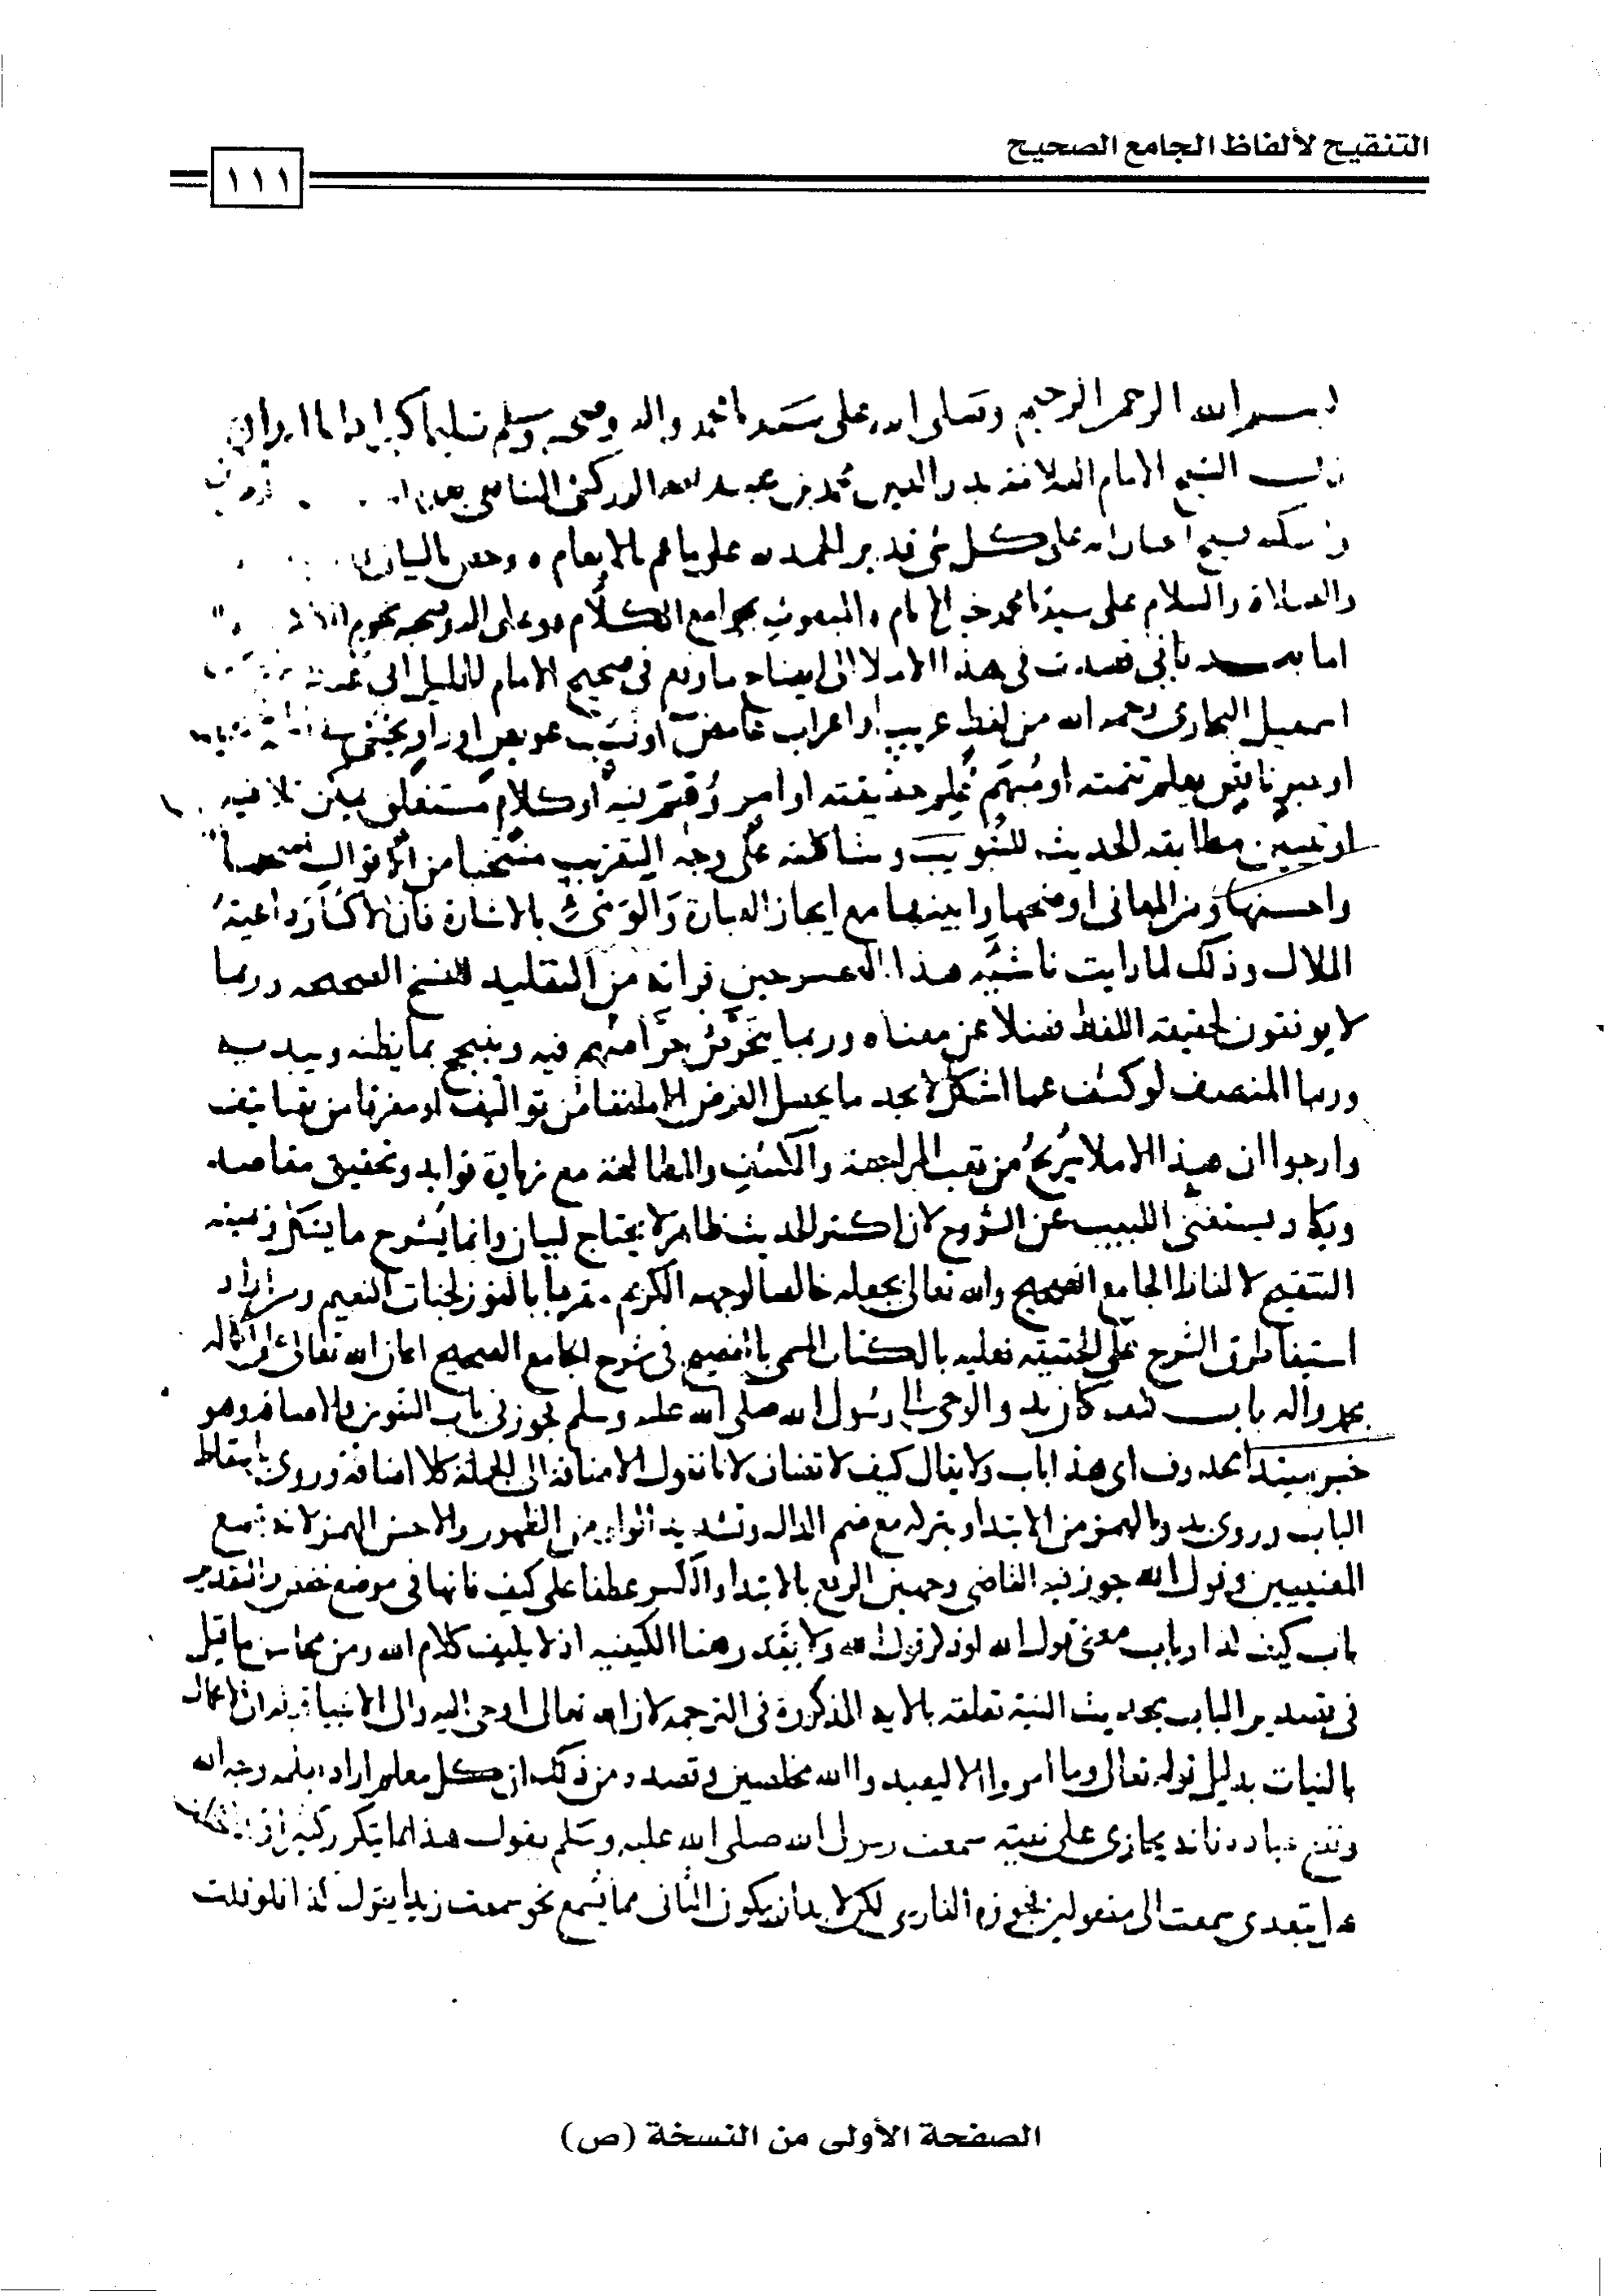 التنقيح لألفاظ الجامع الصحيح
١١١
بسم الله الرحمن الرحيم وصلى الله على سيدنا محمد واله وصحبه وسلم تسليما كثيرا
الشيخ الامام العلامة بدر الدين محمد بن عبد الله الزركشي الشافعي
على كل شي قدير الحمد لله على ما عم بالانعام وخص بالبيان
والصلاة والسلام على سيدنا محمد خير الانام والمبعوث بجوامع الكلام وعلى اله وصحبه نجوم
اما بعد فاني قصدت في هذا الاملا الى ايضاح ما وقع في صحيح الامام الجليل ابي عبد الله
اسمعيل البخاري رحمه الله من لفظ غريب او اعراب غامض او نسب عويص او راو يخشى
او خبر ناقص يعلم تتمته او مبهم علم حقيقته او امر وهم فيه او كلام مستغلق يمكن تلافيه
او تبيين مطابقة الحديث للتبويب ومشاكلته على وجه التقريب منتخبا من الاقوال اصحها
واحسنها ومن المعاني اوضحها وابينها مع ايجاز العبارة والرمز بالاشارة فان الاكثار داعية
الملال وذلك لما رايت ناشية هذا العصر حين قراته من التقليد للنسخ الصحيحه وربما
لا يوفقون لحقيقة اللفظ فضلا عن معناه وربما يتخرص خراصهم فيه ويتبجح بما يظنه ويبديه
وربما المنصف لو كشف عما اشكل لا يجد ما يحصل الغرض الا ملفقا من تواليف او مفرقا من تصانيف
وارجوا ان هذا الاملا يريح من تعب المراجعة والكشف والمطالعة مع زيادة فوايد وتحقيق مقاصد
ويكاد يستغني اللبيب عن الشروح لان اكثر الحديث ظاهر لا يحتاج لبيان وانما يشرح ما يشكل وسميته
التنقيح لالفاظ الجامع الصحيح والله تعالى يجعله خالصا لوجهه الكريم مقربا بالفوز لجنات النعيم ومن اراد
استيفا طرق الشرح على الحقيقة فعليه بالكتاب المسمى بالفصيح في شرح الجامع الصحيح اعان الله تعالى على اكماله
بمحمد واله باب كيف كان بدو الوحي الى رسول الله صلى الله عليه وسلم يجوز في باب التنوين والاضافة وهو
خبر مبتدا محذوف اي هذا باب ولا يقال كيف لا تضاف لانا نقول الاضافة الى الجملة كلا اضافة وروي باسقاط
الباب وروي بدو بالهمز من الابتدا وبتركه مع ضم الدال وتشديد الواو من الظهور والاحسن الهمز لانه يجمع
المعنيين وقول الله جوز فيه القاضي وجهين الرفع بالابتدا والكسر عطفا على كيف فانها في موضع خفض والتقدير
باب كيف كذا وباب معنى قول الله او ذكر قول الله ولا يقدر هنا الكيفيه اذ لا يكيف كلام الله ومن محاسن ما قيل
في تصدير الباب بحديث النية تعلقه بالاية المذكورة في الترجمه لان الله تعالى اوحى اليه والى الانبيا قبله ان الاعمال
بالنيات بدليل قوله تعالى وما امروا الا ليعبدوا الله مخلصين وقصد ومن ذلك ان كل معلم اراد بعلمه وجه الله
ونفع عباده فانه يجازى على نيته سمعت رسول الله صلى الله عليه وسلم يقول هذا مما يتكرر كثيرا
يتعدى سمعت الى مفعولين يجوزه الفارسي لكن لا بد ان يكون الثاني مما يسمع نحو سمعت زيدا يقول كذا فلو قلت
الصفحة الأولى من النسخة (ص)